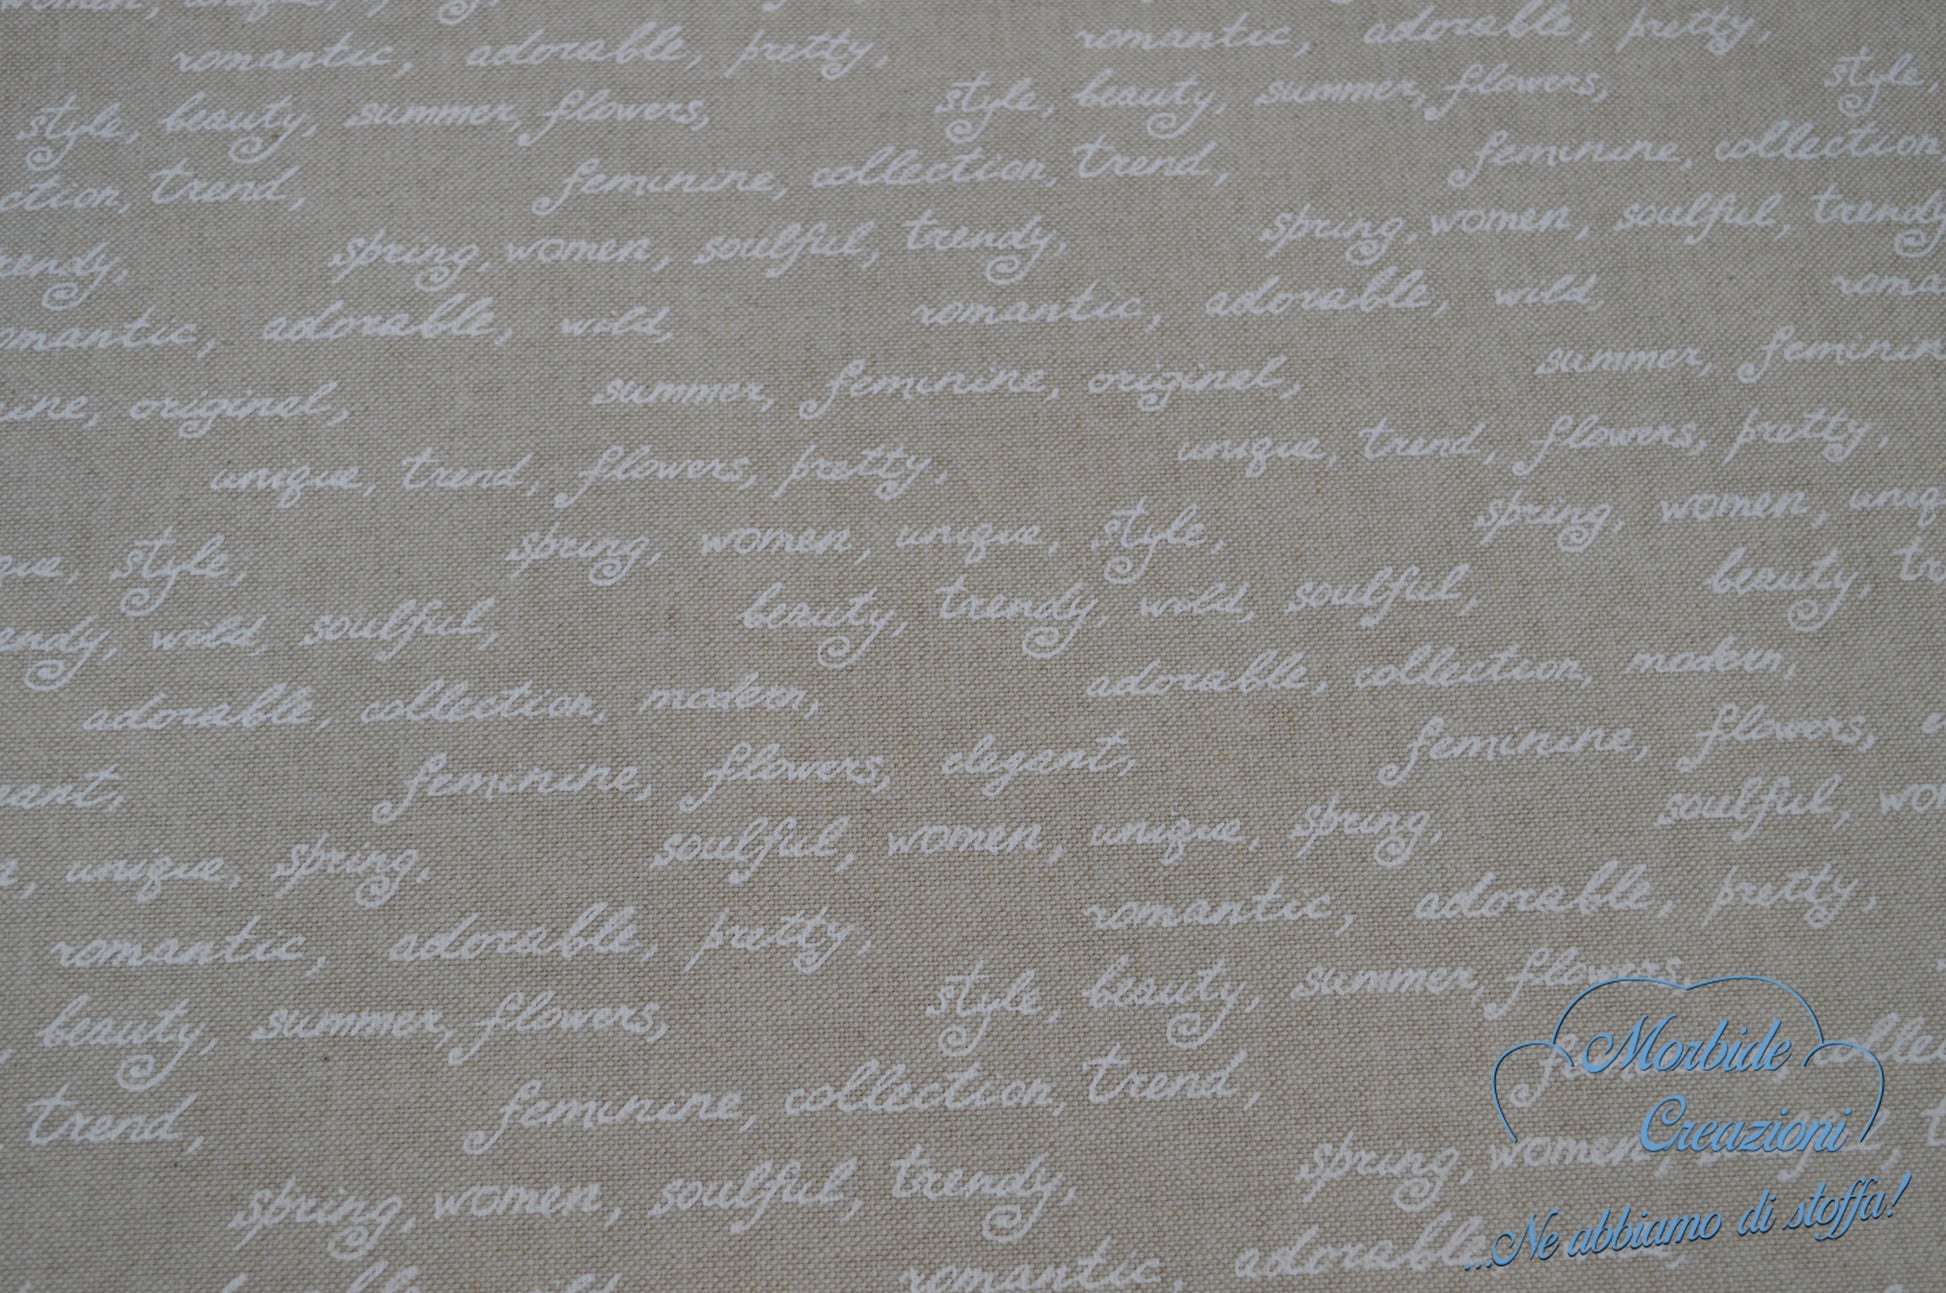 women, unique,
romantic, adorable, pretty, romantic, adorable, pretty,
style, beauty, summer, flowers, style, beauty, summer, flowers, style,
ction, trend, feminine, collection, trend, feminine, collection
endy, spring, women, soulful, trendy, spring, women, soulful, trendy
omantic, adorable, wild, romantic, adorable, wild, roma
ine, original, summer, feminine, original, summer, feminin
unique, trend, flowers, pretty, unique, trend, flowers, pretty,
que, style, spring, women, unique, style, spring, women, uniq
endy, wild, soulful, beauty, trendy, wild, soulful, beauty, tr
adorable, collection, modern, adorable, collection, modern,
ant, feminine, flowers, elegant, feminine, flowers, e
n, unique, spring, soulful, women, unique, spring, soulful, wo
romantic, adorable, pretty, romantic, adorable, pretty,
, beauty, summer, flowers, style, beauty, summer, flowers,
, trend, feminine, collection, trend, collec
spring, women, soulful, trendy, spring, women,
romantic, adorable
Morbide
Creazioni
...Ne abbiamo di stoffa!